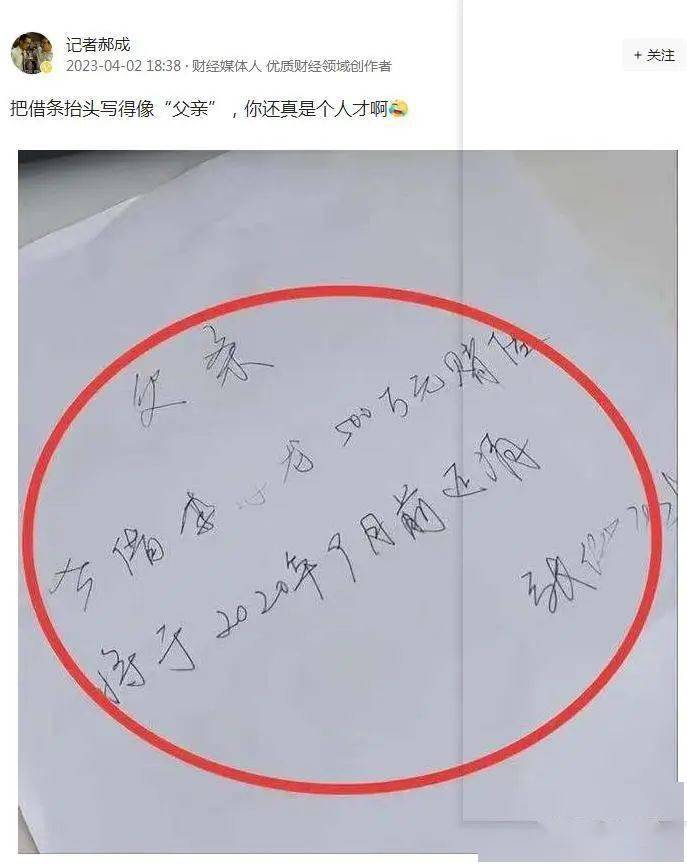 记者郝成
2023-04-02 18:38 · 财经媒体人 优质财经领域创作者
+ 关注
把借条抬头写得像“父亲”，你还真是个人才啊🤣
条
今借李 龙500万元赌
将于2020年9月前还清